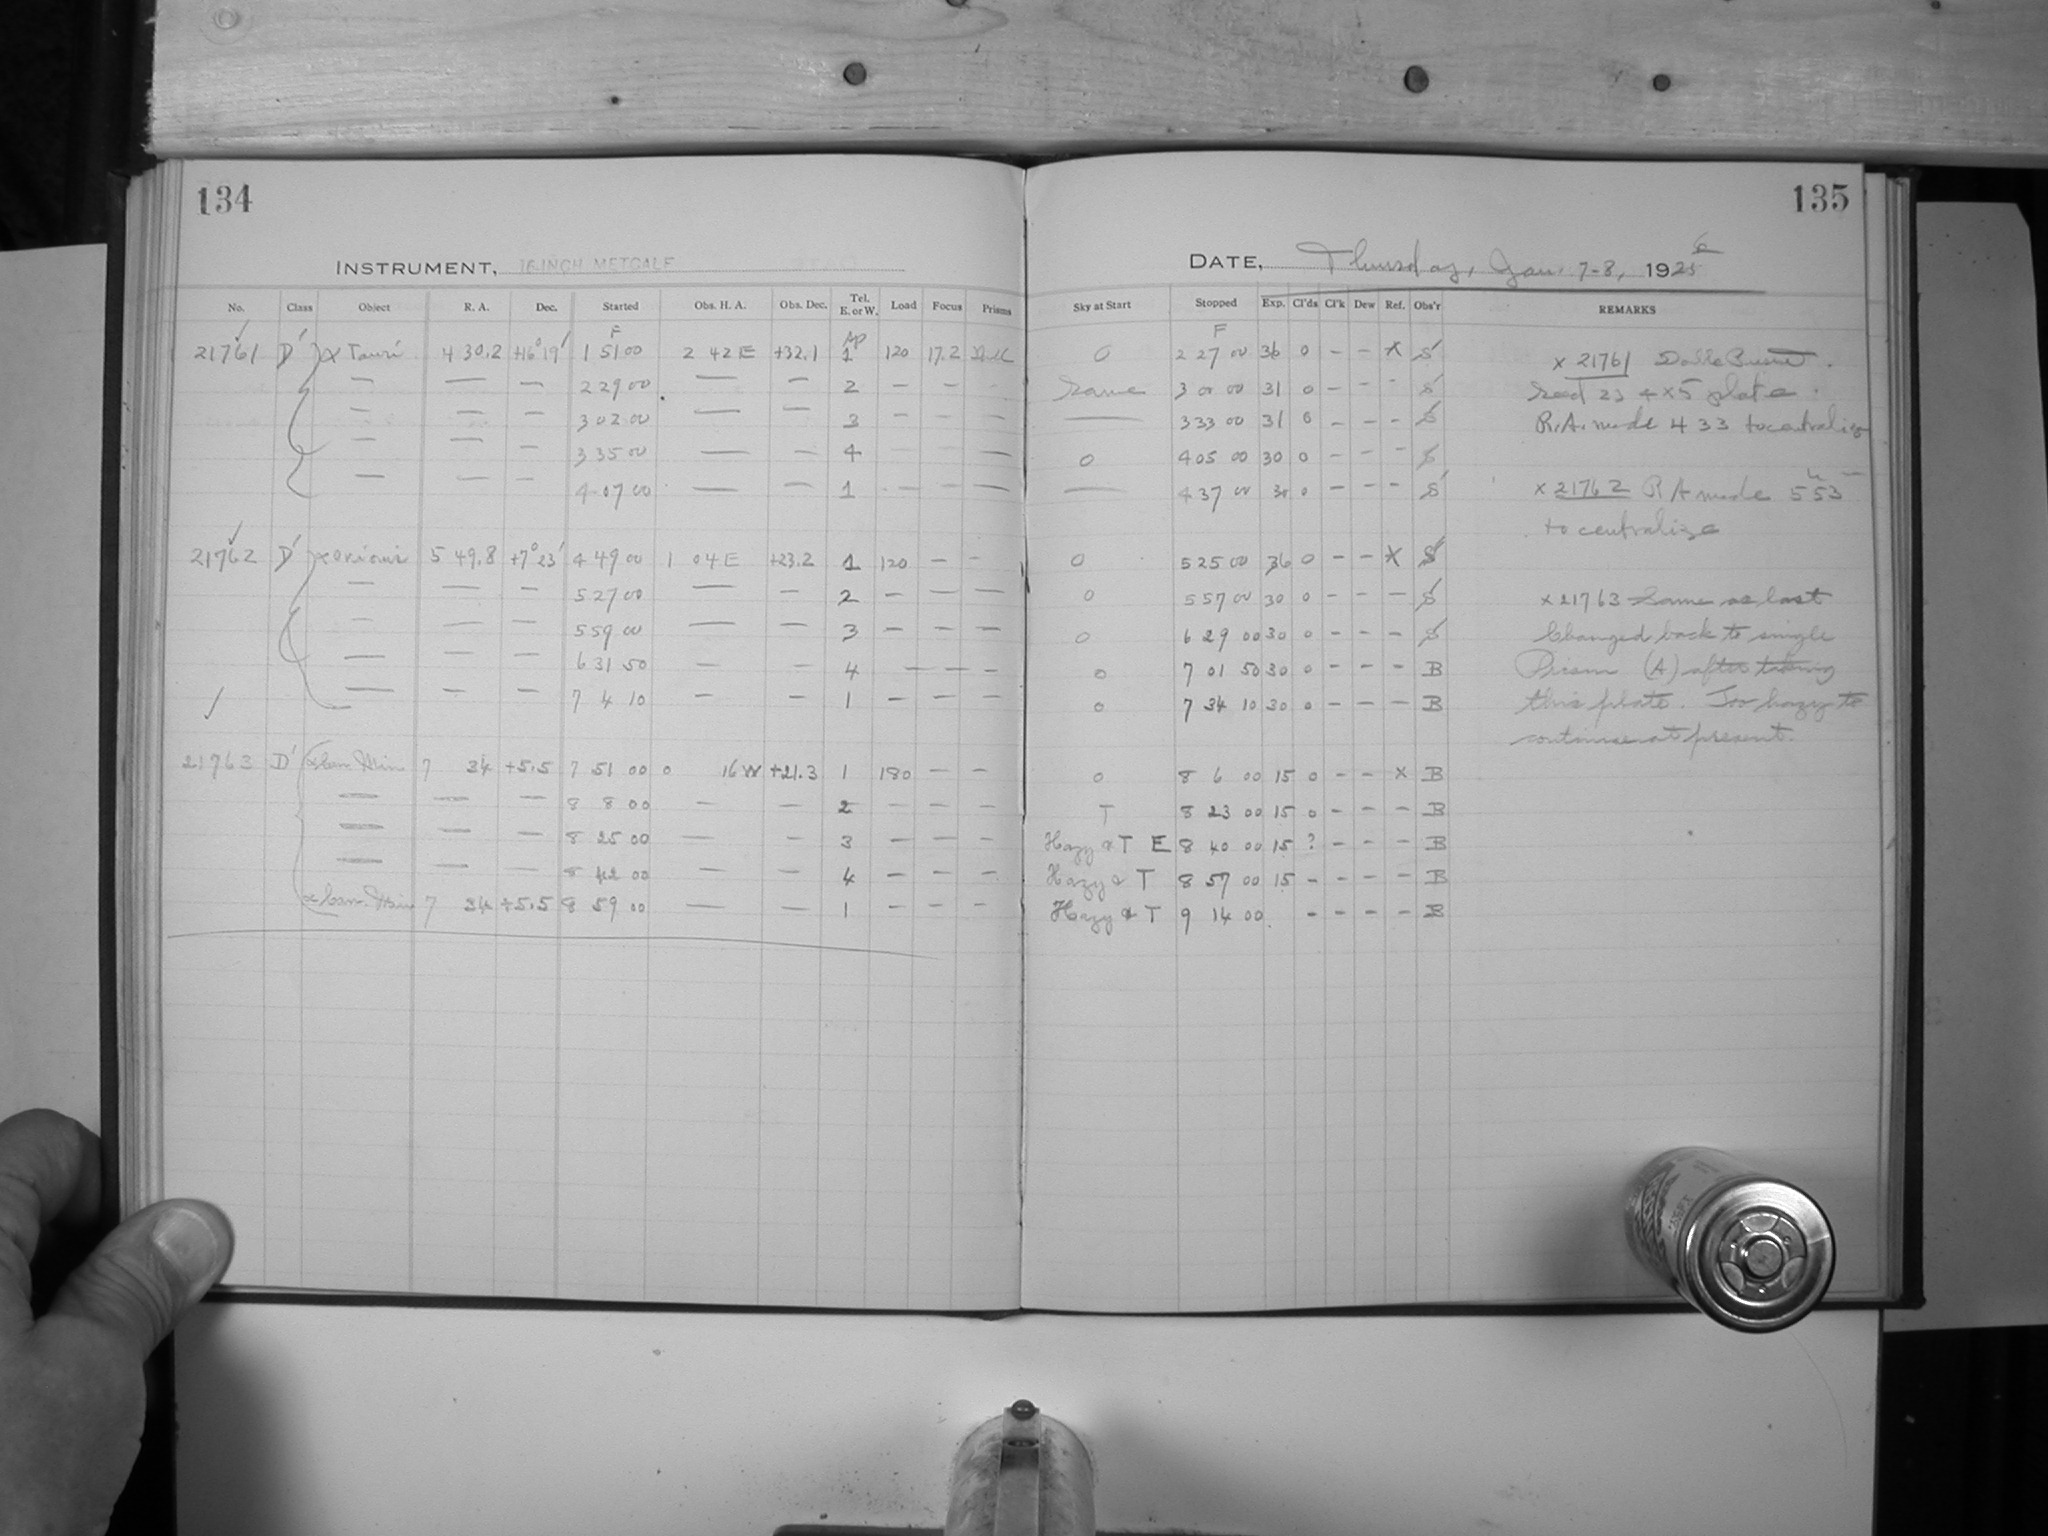 134
135
INSTRUMENT, 16 INCH METCALF
DATE, Thursday, Jan. 7-8, 1925 6
No. Class Object R. A. Dec. Started Obs. H. A. Obs. Dec. Tel. E. or W. Load Focus Prisms
Sky at Start Stopped Exp. Cl'ds Cl'k Dew Ref. Obs'r REMARKS
F Ap
F
21761 D' α Tauri 4 30.2 +16°19' 1 51 00 2 42 E +32.1 1 120 17.2
0 2 27 00 36 0 – – x S
— — — 2 29 00 — — 2 – – –
Same 3 01 00 31 0 – – – S
— — — 3 02 00 — — 3
— 3 33 00 31 0 – – – S
— — — 3 35 00 — — 4 —
0 4 05 00 30 0 – – – S
— — — 4 07 00 — — 1 – – —
— 4 37 00 30 0 – – – S
21762 D' α Orionis 5 49.8 +7°23' 4 49 00 1 04 E +23.2 1 120 – –
0 5 25 00 36 0 – – x S
— — — 5 27 00 — — 2 – – —
0 5 57 00 30 0 – – – S
— — — 5 59 00 — — 3 – – –
0 6 29 00 30 0 – – – S
— — — 6 31 50 — — 4 – – –
0 7 01 50 30 0 – – – B
— — — 7 4 10 – – 1 – – –
0 7 34 10 30 0 – – – B
21763 D' α Can. Min 7 34 +5.5 7 51 00 0 16 W +21.3 1 180 – –
0 8 6 00 15 0 – – x B
— — — 8 8 00 – – 2 – – –
T 8 23 00 15 0 – – – B
— — — 8 25 00 — – 3 – – –
Hazy & T E 8 40 00 15 ? – – – B
— — — 8 42 00 — — 4 – – –
Hazy & T 8 57 00 15 – – – – B
α Can. Min 7 34 +5.5 8 59 00 — — 1 – – –
Hazy & T 9 14 00 – – – – B
x 21761
Seed 23 4x5 plate.
R.A. made 4 33 to centralize
x 21762 R A made 5h 53
to centralize
x 21763 Same as last
Changed back to single
Prism (A) after taking
this plate. Too hazy to
continue at present.